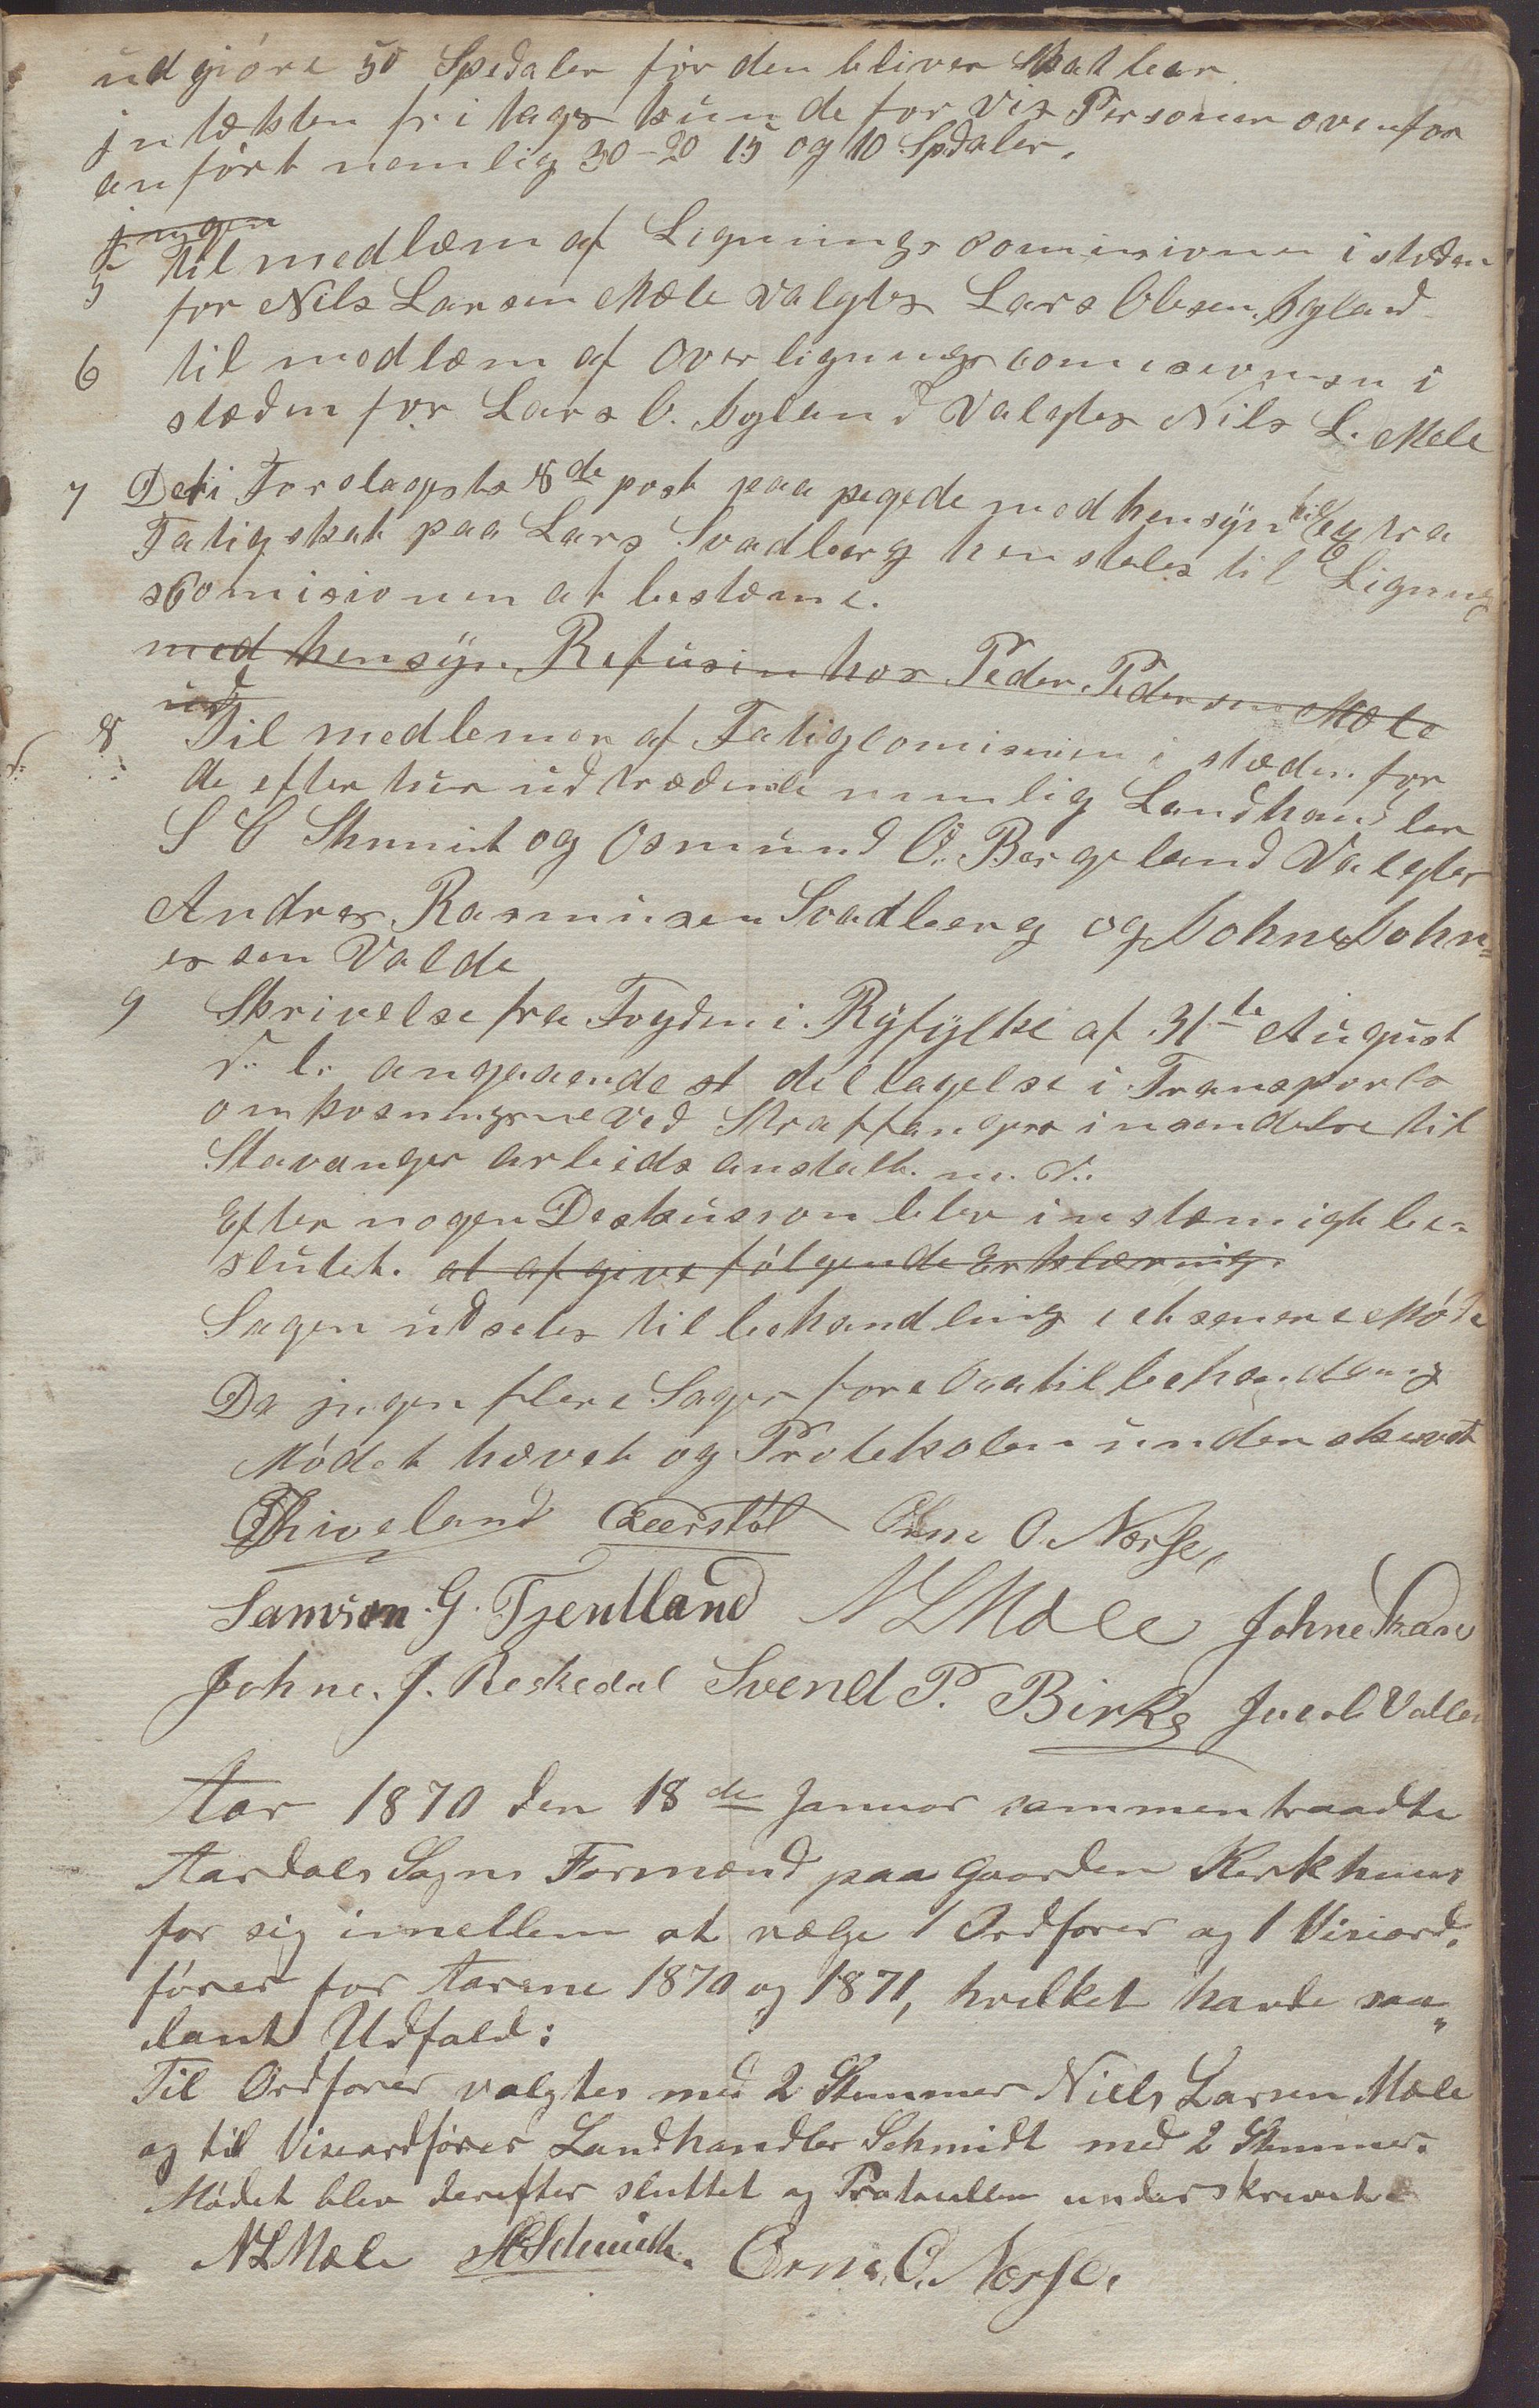 udgjöre 50 Spedaler för den bliver Skatbar
jntækten fritages kunde for vis Personer ovenfor
anfört nemlig 30-20 15 og 10 Spdaler.
jngen
5 til medlæm af Lignings Comisionen i stæden
for Nils Larsen Mæle valgtes Lars Olsen Byland
6 til medlæm af Overlignings comisionen i
stæden for Lars O. Byland Valgtes Nils L. Mele
7 Det i Forslagets 8de post paa pegede med hensÿn til extra
Fatigskat paa Lars Svadberg hensteles til Lignings
Comisionen at bestæme.
med hensÿn Refusin hos Peder Pedersen Mæle
ud
8 Til medlemer af Fatigcomisionen i stæden for
de efter tur udtrædende nemlig Landhandler
S C Shmit og Osmund O. Bergeland Valgtes
Andreas Rasmusen Svadberg og Johne John=
essen Valde
9 Skrivelse fra Fogden i Rÿfÿlke af 31te August
d. l. angaaende deltagelse i Transports
omkosningerne ved Straffangers insendelse til
Stavanger arbeidsanstalt m. v.
Efter nogen Deskusion blev instæmigt be-
slutet. at afgive fölgende Erklæring.
Sagen udsetes til behandling i et senere Möde
Da jngen flere Sager fore laa til behandling
Mödet hævet og Protokolen underskrevet
Thiveland Orm O. Nærse,
Samson. G. Tjentland N L Mæle Johne
Johne. J. Reskedal Svend P. Birke Valle
Aar 1870 den 18de Januar sammentraadte
Aardals Sogns Formænd paa Gaarden Kirkhuus
for sig imellem at vælge 1 Ordförer og 1 Viseord,
förer for Aarene 1870 og 1871, hvilket havde saa„
dant Udfald:
Til Ordförer valgtes med 2 Stemmer Niels Larsen Mæle
og til Viseordförer Landhandler Schmidt med 2 Stemmer.
Mödet blev derefter sluttet og Protocollen underskrevet
N L Mæle SC Schmidt. Orm. O. Nærse.